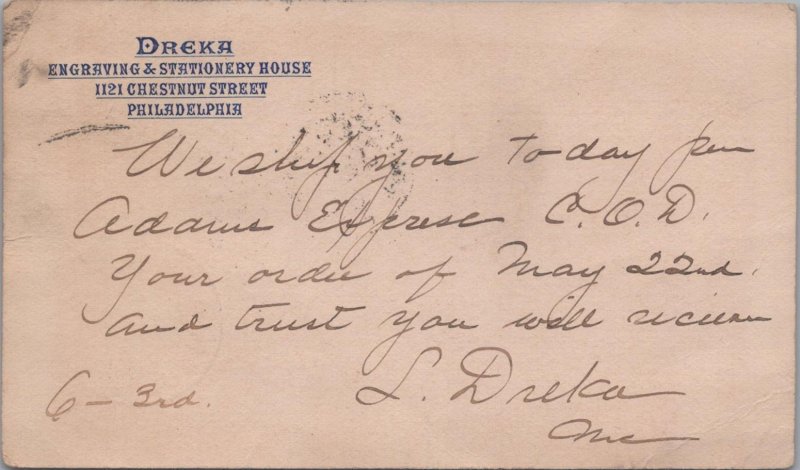 DREKA
ENGRAVING & STATIONERY HOUSE
1121 CHESTNUT STREET
PHILADELPHIA
We ship you today per
Adams Express C.O.D.
Your order of May 22nd.
and trust you will receive
L. Dreka
6 - 3rd.